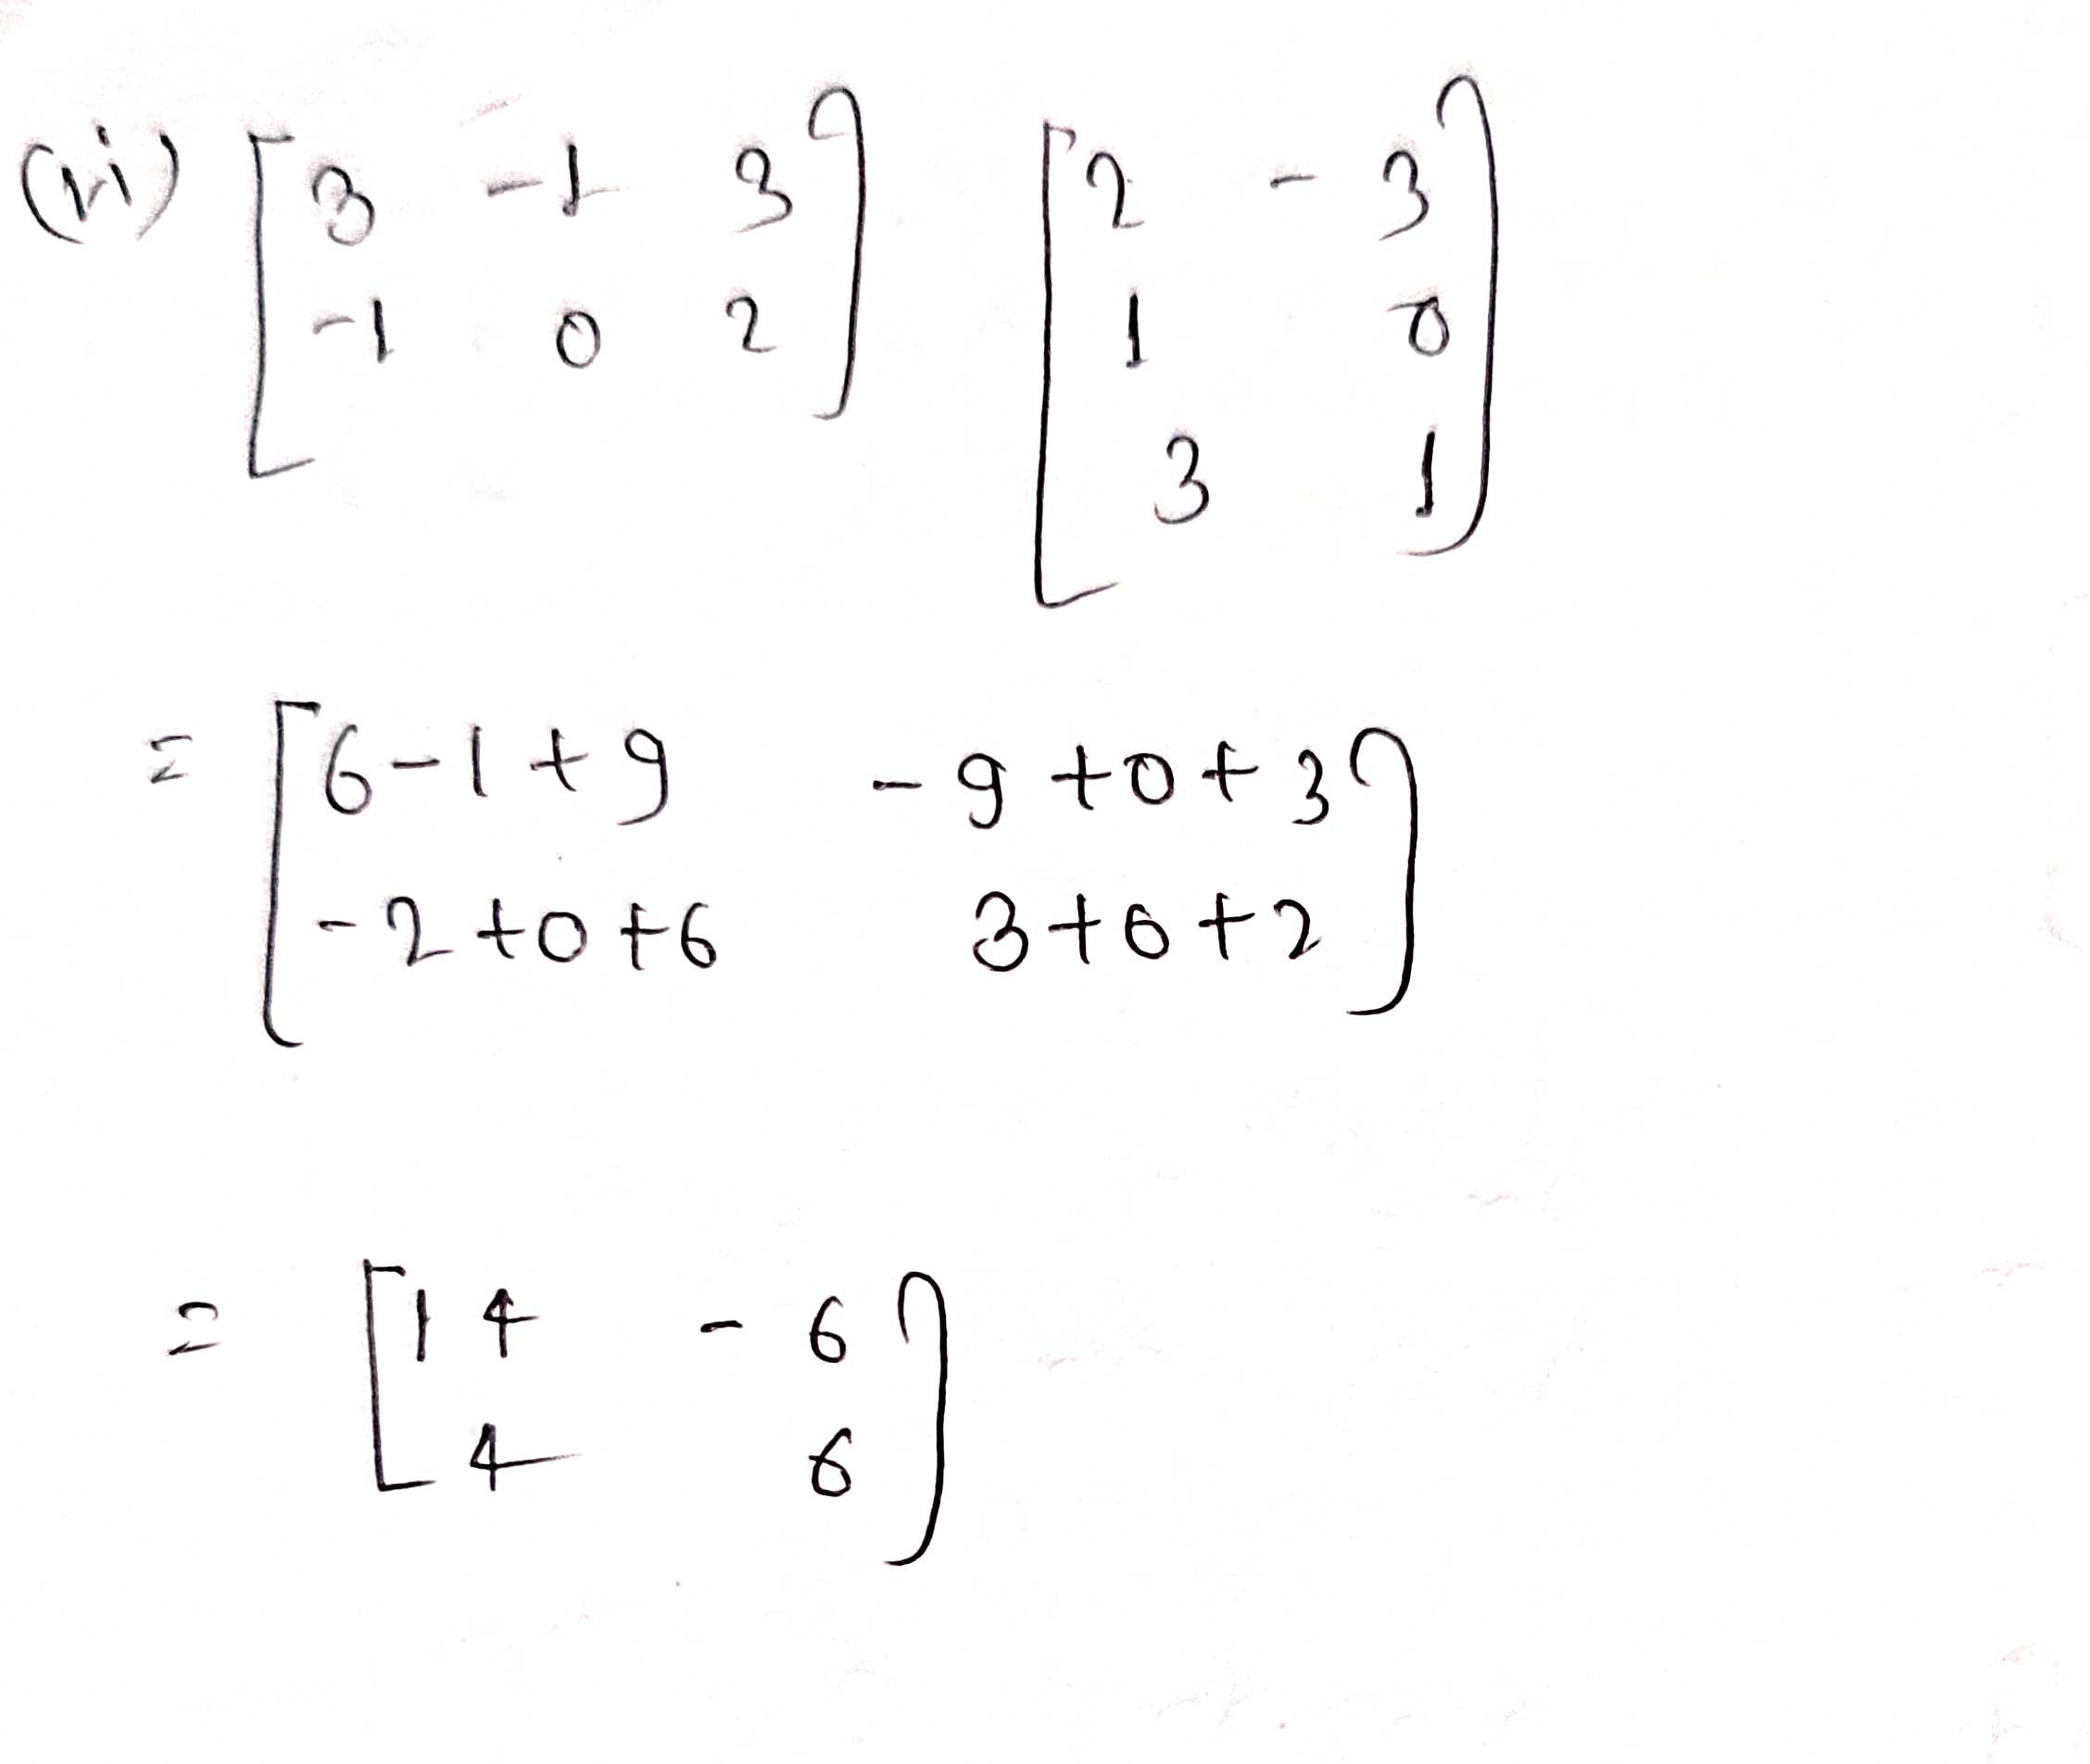 (vi) [3 -1 3] [2 -3]
[-1 0 2] [1 0]
[3 1]
= [6-1+9 -9+0+3]
[-2+0+6 3+0+2]
= [14 -6]
[4 6]